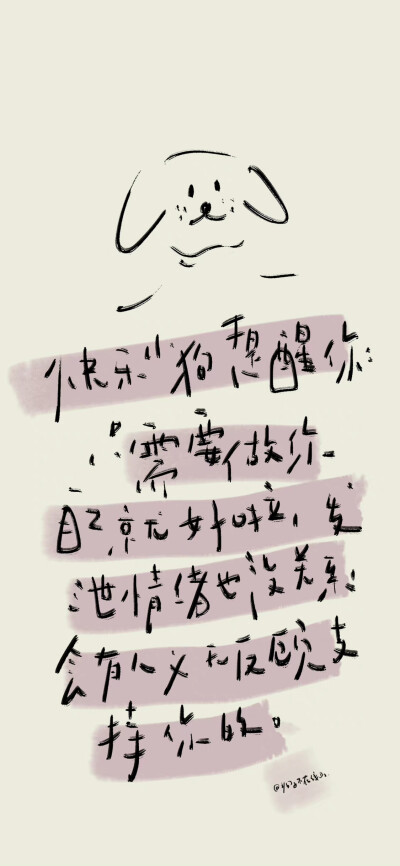 快乐小狗提醒你:
只需要做你
自己就好啦，发
泄情绪也没关系
会有人义无反顾支
持你的。